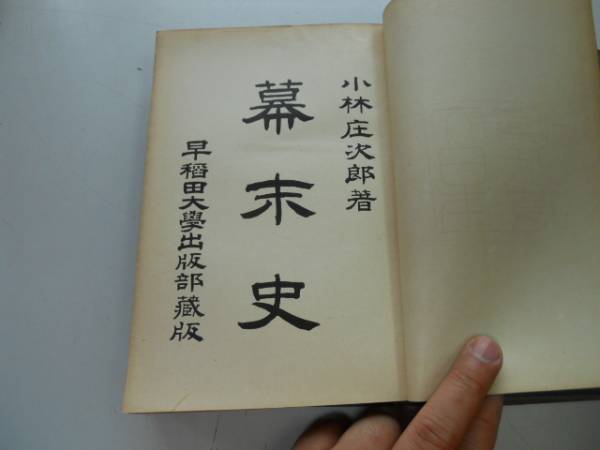 小林庄次郎著
幕末史
早稻田大學出版部藏版